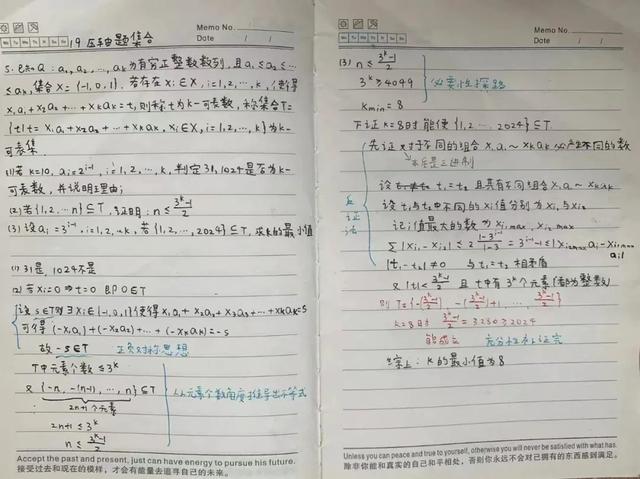 Memo No.
Mo Tu We Th Fr Sa Su
Date / /
19 压轴题集合
5. 已知Q：a₁, a₂, …, aₖ为有穷正整数数列，且a₁≤a₂≤…
≤aₖ，集合X={-1,0,1}. 若存在xᵢ∈X, i=1,2,…,k, 使得
x₁a₁+x₂a₂+…+xₖaₖ=t, 则称t为k-可表数，称集合T=
{t|t=x₁a₁+x₂a₂+…+xₖaₖ, xᵢ∈X, i=1,2,…,k}为k-
可表集.
(1)若k=10, aᵢ=2ⁱ⁻¹, i=1,2,…,k, 判定31,1024是否为k-
可表数，并说明理由；
(2)若{1,2,…n}⊆T, 证明：n≤(3ᵏ-1)/2
(3)设aᵢ=3ⁱ⁻¹, i=1,2,…k, 若{1,2,…,2024}⊆T, 求k的最小值
(1) 31是，1024不是
(2) 若xᵢ=0 ⇒ t=0 即0∈T
设s∈T则∃xᵢ∈{-1,0,1}使得x₁a₁+x₂a₂+x₃a₃+…+xₖaₖ=s
可得(-x₁a₁)+(-x₂a₂)+…+(-xₖaₖ)=-s
故-s∈T 正负对称思想
T中元素个数≤3ᵏ
又{-n, -(n-1), …, n}⊆T
2n+1个元素
2n+1≤3ᵏ
n≤(3ᵏ-1)/2
从元素个数角度推导出不等式
Accept the past and present, just can have energy to pursue his future.
接受过去和现在的模样，才会有能量去追寻自己的未来。
Memo No.
Mo Tu We Th Fr Sa Su
Date / /
(3) n≤(3ᵏ-1)/2
3ᵏ≥4049
必要性探路
kmin=8
下证k=8时能使{1,2…2024}⊆T.
先证对于不同的组合x₁a₁~xₖaₖ必产生不同的数
本质是三进制
反证法
设t₁=t₂且具有不同组合x₁a₁~xₖaₖ
设t₁与t₂中不同的xᵢ值分别为xᵢ₁与xᵢ₂
记i值最大的数为xᵢ₁max, xᵢ₂max
∑|xᵢ₁-xᵢ₂|≤2·(1-3ⁱ⁻¹)/(1-3)=3ⁱ⁻¹-1≤|xᵢ₂maxaᵢ-xᵢ₁maxaᵢ|
|t₁-t₂|≠0 与t₁=t₂相矛盾
又|t|≤(3ᵏ-1)/2 且t中有3ᵏ个元素(都为整数)
则T={-(3ᵏ-1)/2, -(3ᵏ-1)/2+1, … (3ᵏ-1)/2}
k=8时 (3ᵏ-1)/2=3280≥2024
能成立 充分性补证完
综上：k的最小值为8
Unless you can peace and true to yourself, otherwise you will never be satisfied with what has.
除非你能和真实的自己和平相处，否则你永远不会对已拥有的东西感到满足。